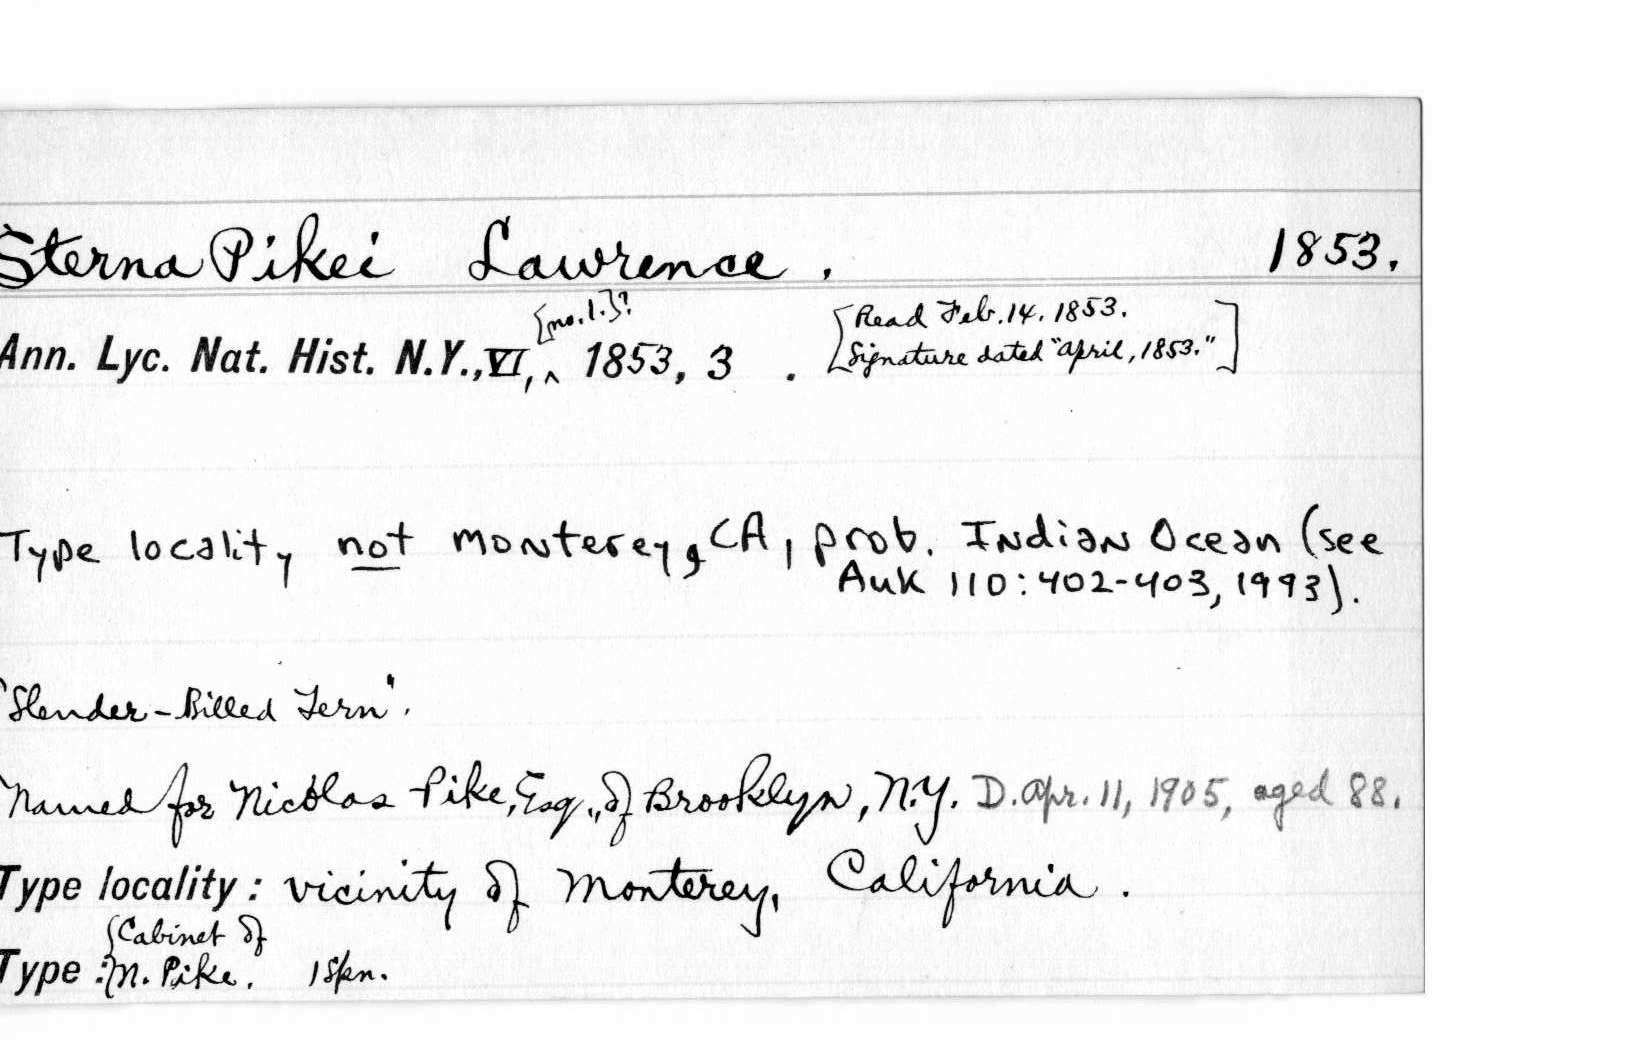 Sterna Pikei Lawrence. 1853.
[no.1.]? [Read Feb. 14. 1853.
Ann. Lyc. Nat. Hist. N.Y., VI, ^ 1853, 3 . Signature dated "April, 1853."]
Type locality not Monterey, CA, prob. Indian Ocean (see
Auk 110:402-403, 1993).
"Slender-Billed Tern".
Named for Nicolas Pike, Esq., of Brooklyn, N.Y. D. Apr. 11, 1905, aged 88.
Type locality: vicinity of Monterey, California.
(Cabinet of
Type: N. Pike. 1 spn.